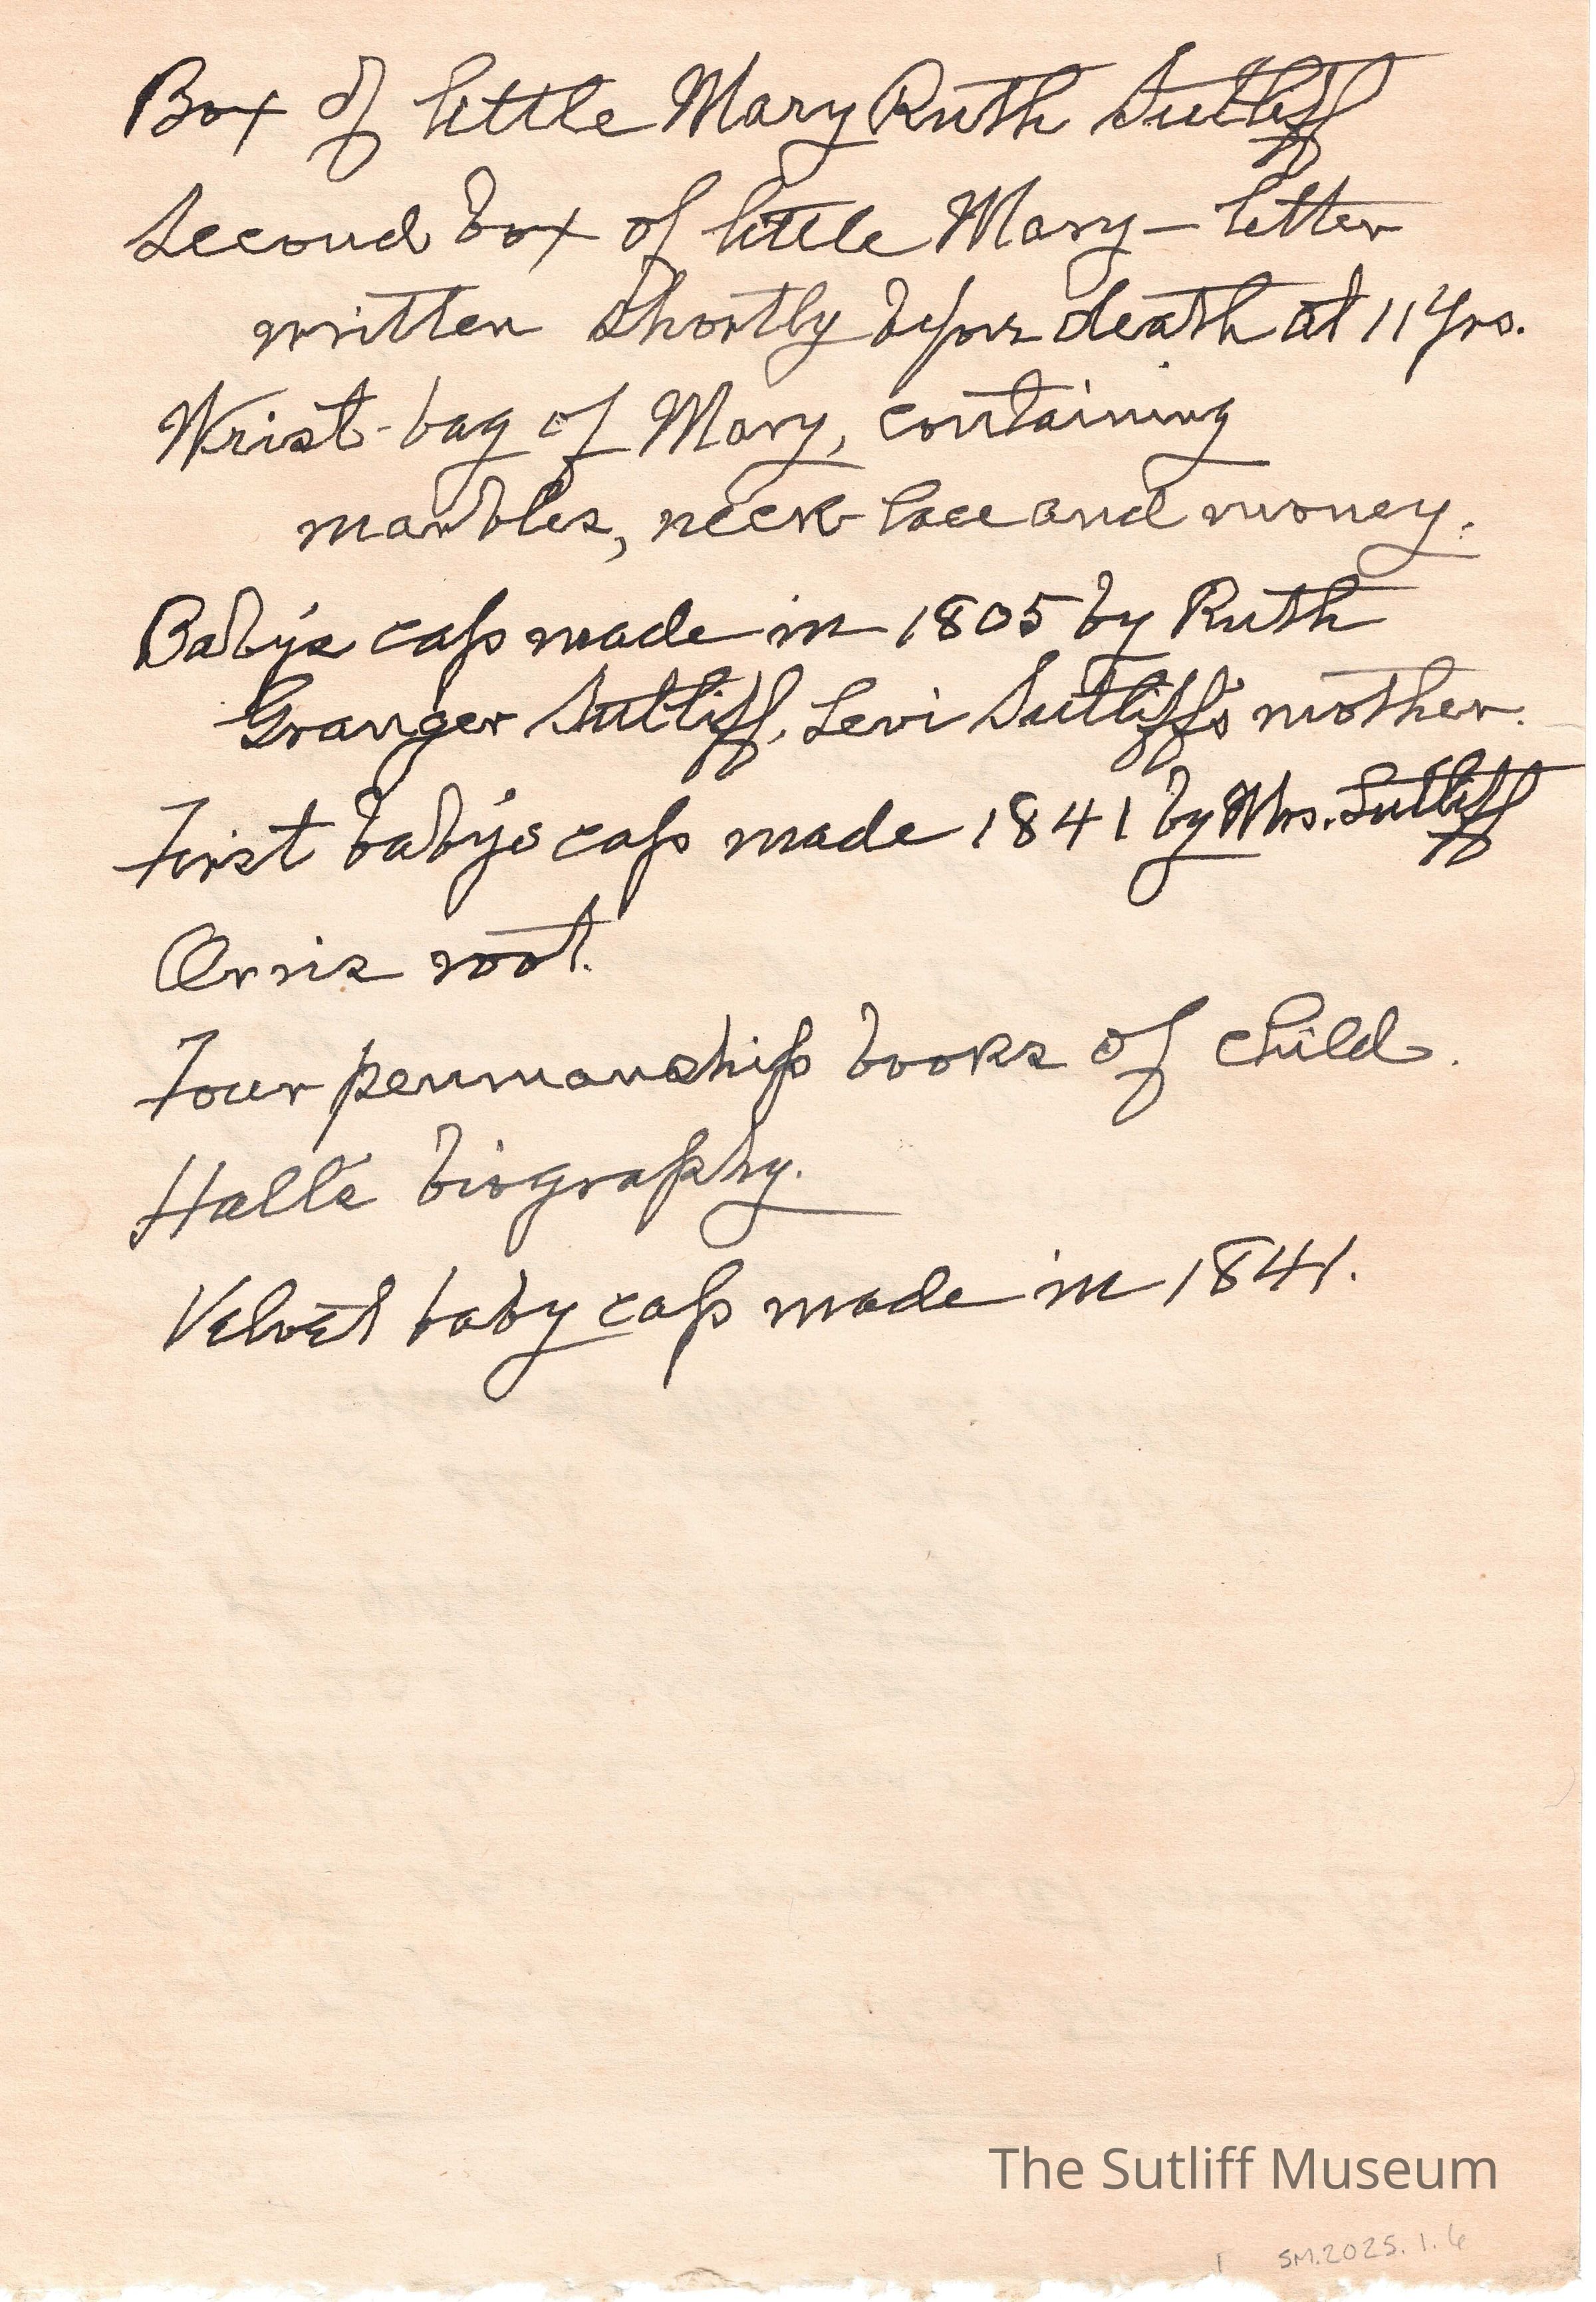 Box of little Mary Ruth Sutliff
Second box of little Mary — letter
written shortly before death at 11 yrs.
Wrist-bag of Mary, containing
marbles, neck-lace and money.
Baby's cap made in 1805 by Ruth
Granger Sutliff, Levi Sutliff's mother.
First baby's cap made 1841 by Mrs. Sutliff
Orris root.
Four penmanship books of child.
Hall's biography.
Velvet baby cap made in 1841.
The Sutliff Museum
1 SM.2025.1.6